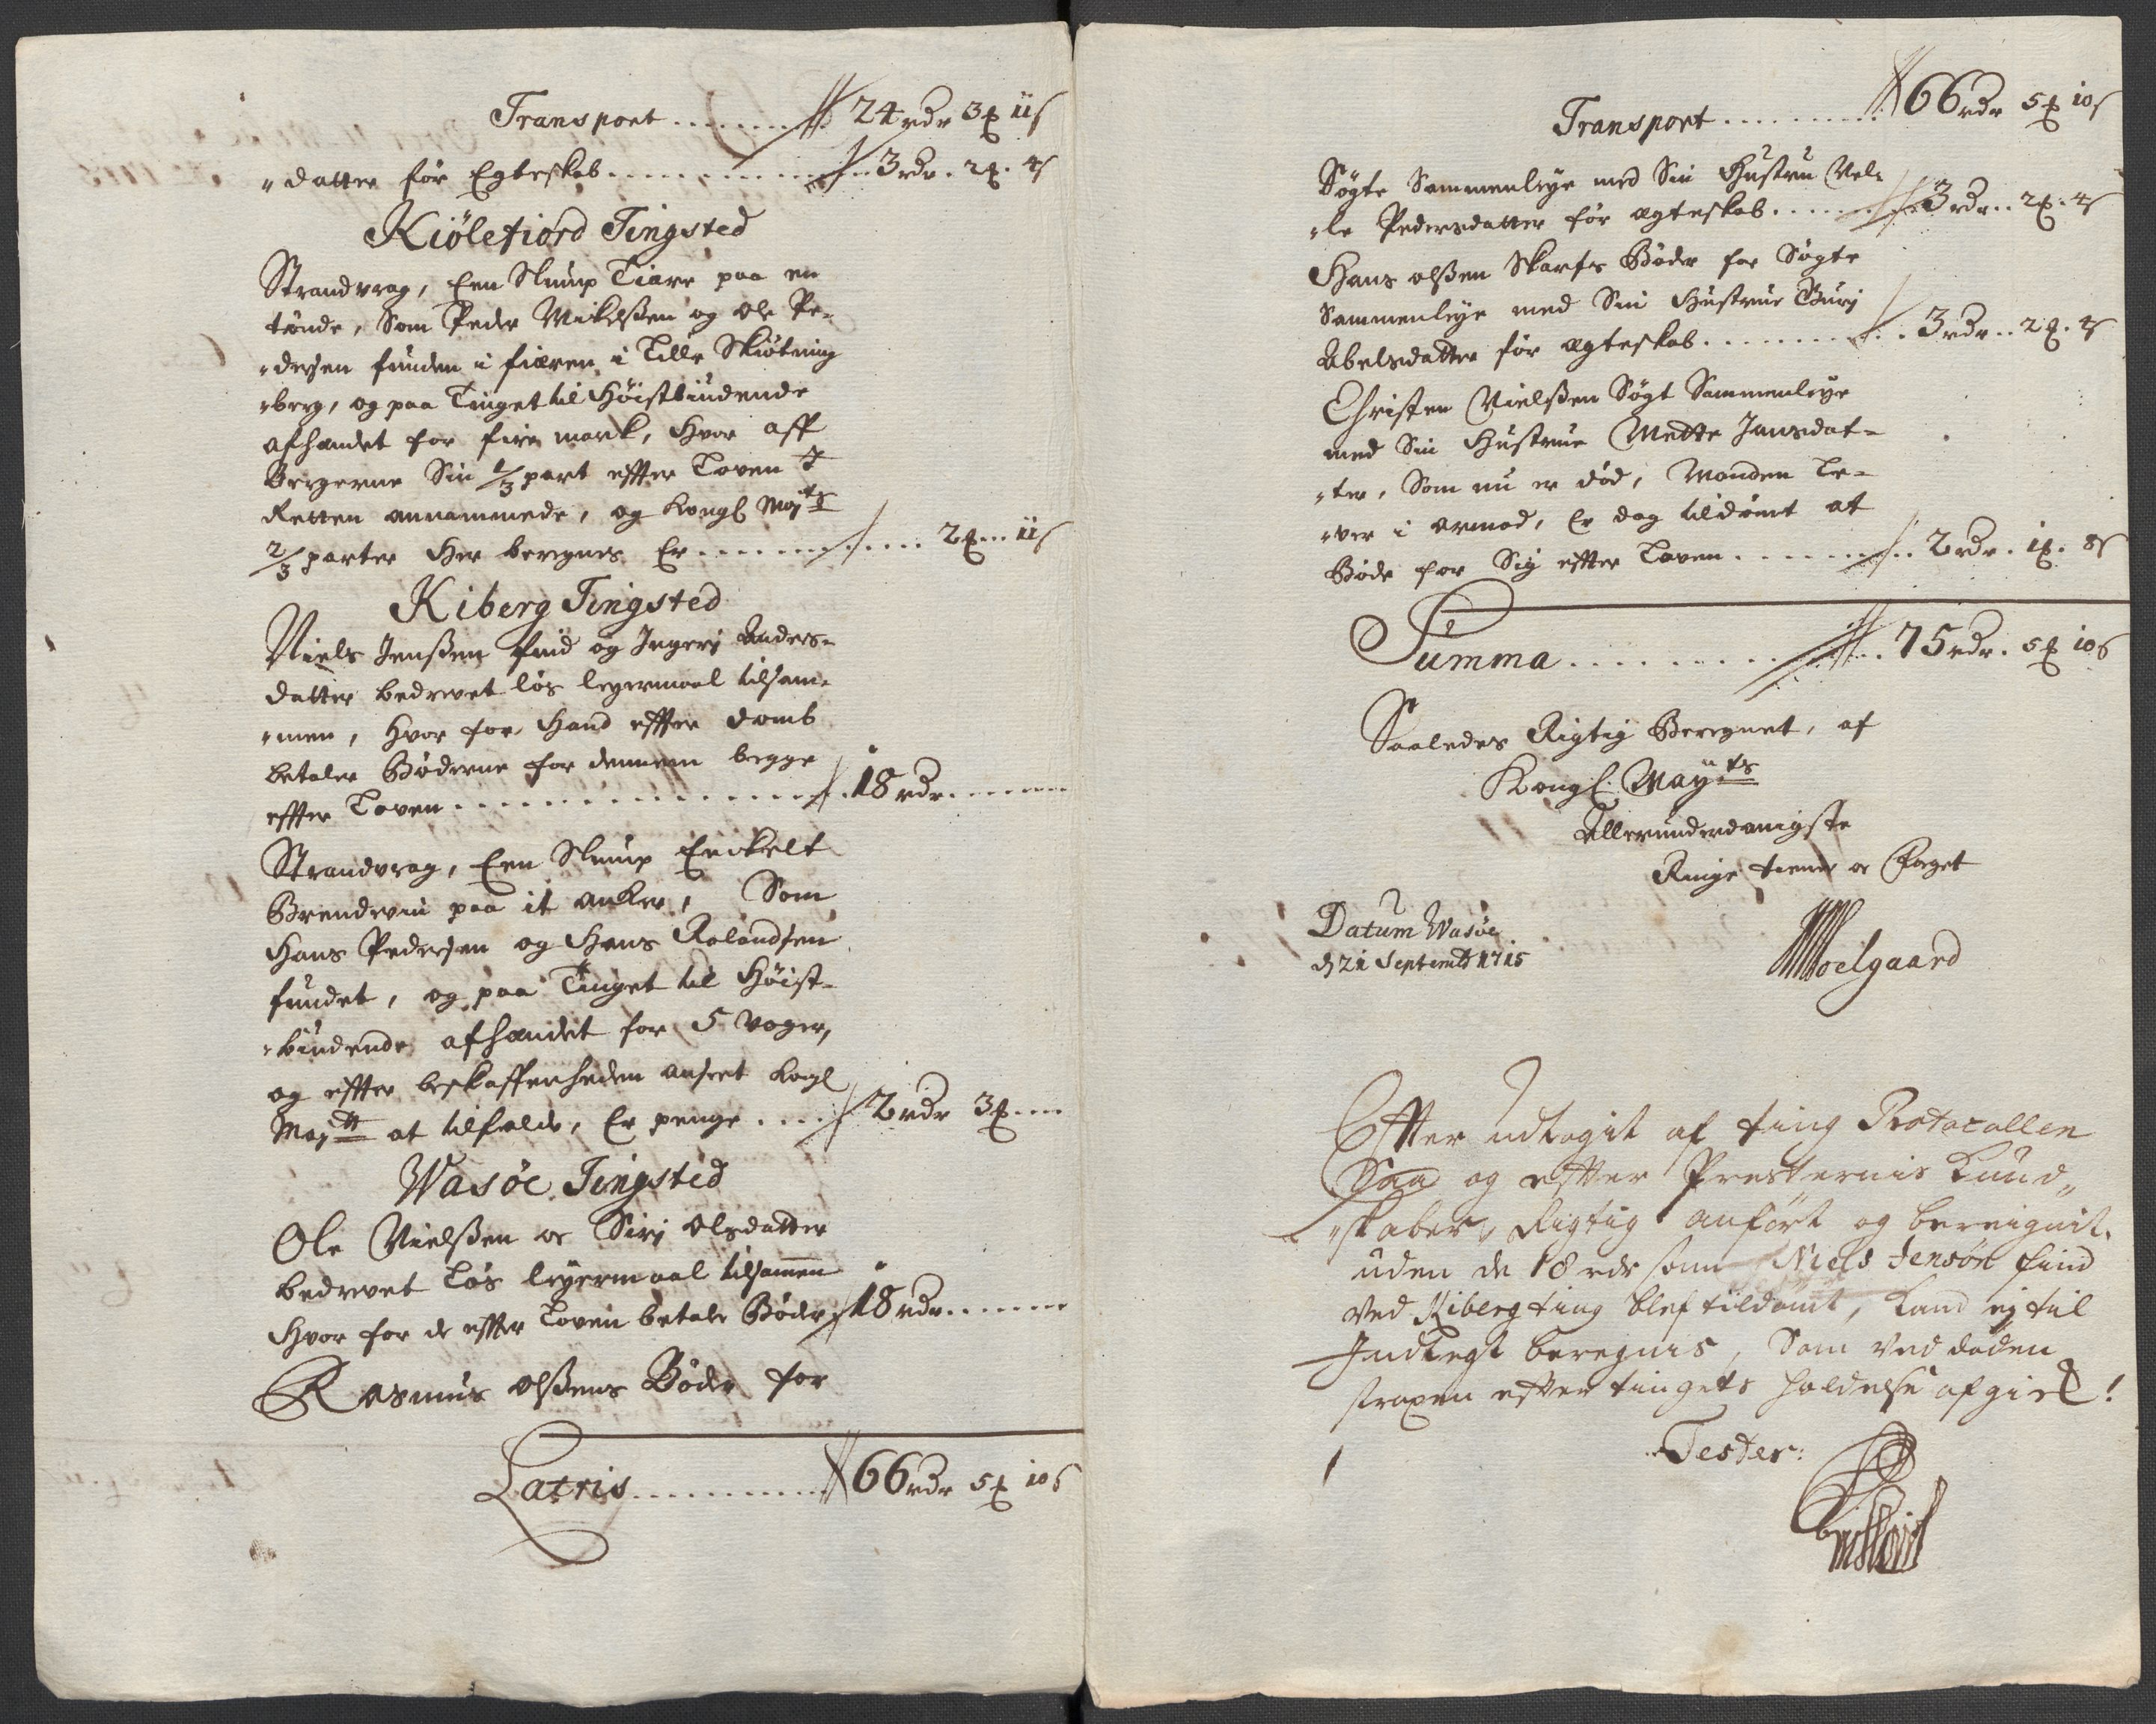 Transport ........ 24 rdr 3 ℔ ii s
"datter før Egteskab ........ 3 rdr. 2 ℔. 4 s
Kiölefiord Tingsted
Strandvrag, Een Slump Tiære paa en
tønde, Som Peder Mikelßen og Ole Pe-
"dersen funden i fiæren i Lille Skiøtning
"berg, og paa Tinget til Høistbiudende
afhændet for fire mark, Hvor aff
Bergerne Sin 1/3 part effter Loven I
Retten annammede, og Kongl Majts
2/3 parter Her beregnes Er ........ 2 ℔ .. ii s
Kiberg Tingsted
Niels Jenßen find og Ingeri Anders-
datter bedrevet løs leyermaal tilsam-
"men, Hvor for Hand effter domb
betaler Bøderne for dennem begge
effter Loven ........ 18 rdr ......
Strandvrag, Een Slump Enckelt
Brendevin paa it Anker, Som
Hans Pedersen og Hans Rolandsen
fundet, og paa Tinget til Høist-
"biudende afhændet for 5 Voger,
og effter beskaffenheden anseet Kongl
Majtt at tilfalde, Er penge .... 2 rdr 3 ℔ ...
Wasöe Tingsted
Ole Nielßen oc Siri Olsdatter
bedrevet Løs leyermaal tilsammen
Hvor for de effter Loven betale Bøder 18 rdr ......
Rasmus Olßens Bøder for
Latris ........ 66 rdr 5 ℔ 10 s
Transport ........ 66 rdr 5 ℔ 10 s
Søgte Sammenleye med Sin Hustru Vel-
"le Pedersdatter før ægteskab ...... 3 rdr .. 2 ℔. 4 s
Hans Olßen Skarfes Bøder for Søgte
Sammenleye med Sin Hustrue Guri
Abelsdatter før ægteskab ........ 3 rdr .. 2 ℔. 4 s
Christen Nielßen Søgt Sammenleye
med Sin Hustrue Mette Jansdat-
"ter, Som nu er død, Manden Le-
"ver i armod, Er dog tildømt at
Bøde for Sig effter Loven ........ 2 rdr. 1 ℔. 8 s
Summa ........ 75 rdr. 5 ℔ 10 s
Saaledes Rigtig Beregnet, af
Kongl. Mayts
Allerunderdanigste
Ringe tiener oc Foget
Datum Wasöe
d 21 Septembr 1715
Moelgaard
Effter udtogit af ting Protocollen
Saa og effter Presternis Kund„
"skaber, Rigtig anført og bereignit.
uden de 18 rdr som Niels Jensøn find
ved Kiberg ting blef tildømt, Kand ej til
Indtegt beregnis, Som ved døden
straxen effter tingets holdelse afgick!
Tester: